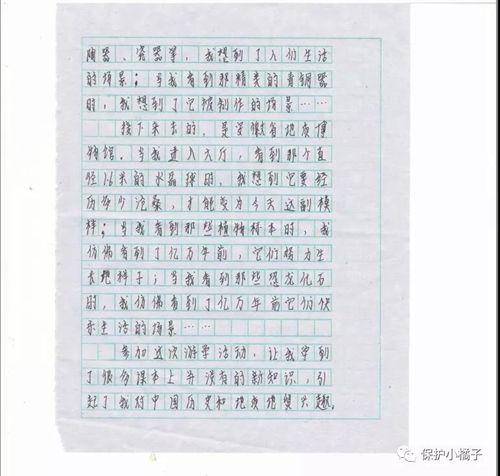 陶器、瓷器等，我想到了人们生活
的场景；当我看到那精美的青铜器
时，我想到了它被制作的场景……
接下来去的，是安徽省地质博
物馆。当我进入大厅，看到那个直
径1.6米的水晶球时，我想到它要经
历多少沧桑，才能变为今天这副模
样；当我看到那些植物标本时，我
仿佛看到了亿万年前，它们努力生
长的样子；当我看到那些恐龙化石
时，我仿佛看到了亿万年前它们快
乐生活的场景……
参加这次游学活动，让我学到
了很多课本上并没有的新知识，引
起了我对中国历史和地质地貌兴趣。
保护小橘子